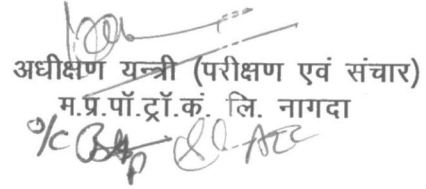 अधीक्षण यन्त्री (परीक्षण एवं संचार)
म.प्र.पॉ.ट्रॉ.कं. लि. नागदा
O/C